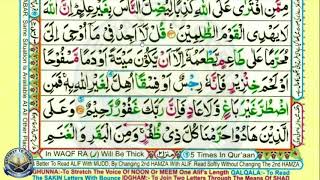 لَا يَهْدِي الْقَوْمَ الظّٰلِمِيْنَ قُلْ لَّآ اَجِدُ فِيْ مَآ اُوْحِيَ اِلَيَّ
مُحَرَّمًا عَلٰى طَاعِمٍ يَّطْعَمُهٗٓ اِلَّآ اَنْ يَّكُوْنَ مَيْتَةً اَوْ دَمًا مَّسْفُوْحًا
اَوْ لَحْمَ خِنْزِيْرٍ فَاِنَّهٗ رِجْسٌ اَوْ فِسْقًا اُهِلَّ لِغَيْرِ اللّٰهِ بِهٖ فَمَنِ
اضْطُرَّ غَيْرَ بَاغٍ وَّلَا عَادٍ فَاِنَّ رَبَّكَ غَفُوْرٌ رَّحِيْمٌ وَعَلَى
الَّذِيْنَ هَادُوْا حَرَّمْنَا كُلَّ ذِيْ ظُفُرٍ وَمِنَ الْبَقَرِ وَالْغَنَمِ
In WAQF RA (ر) Will Be Thick 5 Times In Qur'aan
Better To Read ALIF With MUDD, By Changing 2nd HAMZA With ALIF. Read Softly Without Changing The 2nd HAMZA
GHUNNA:-To Stretch The Voice Of NOON Or MEEM One Alif's Length QALQALA:- To Read
The SAKIN Letters With Bounce IDGHAM:- To Join Two Letters Through The Means Of SHAD